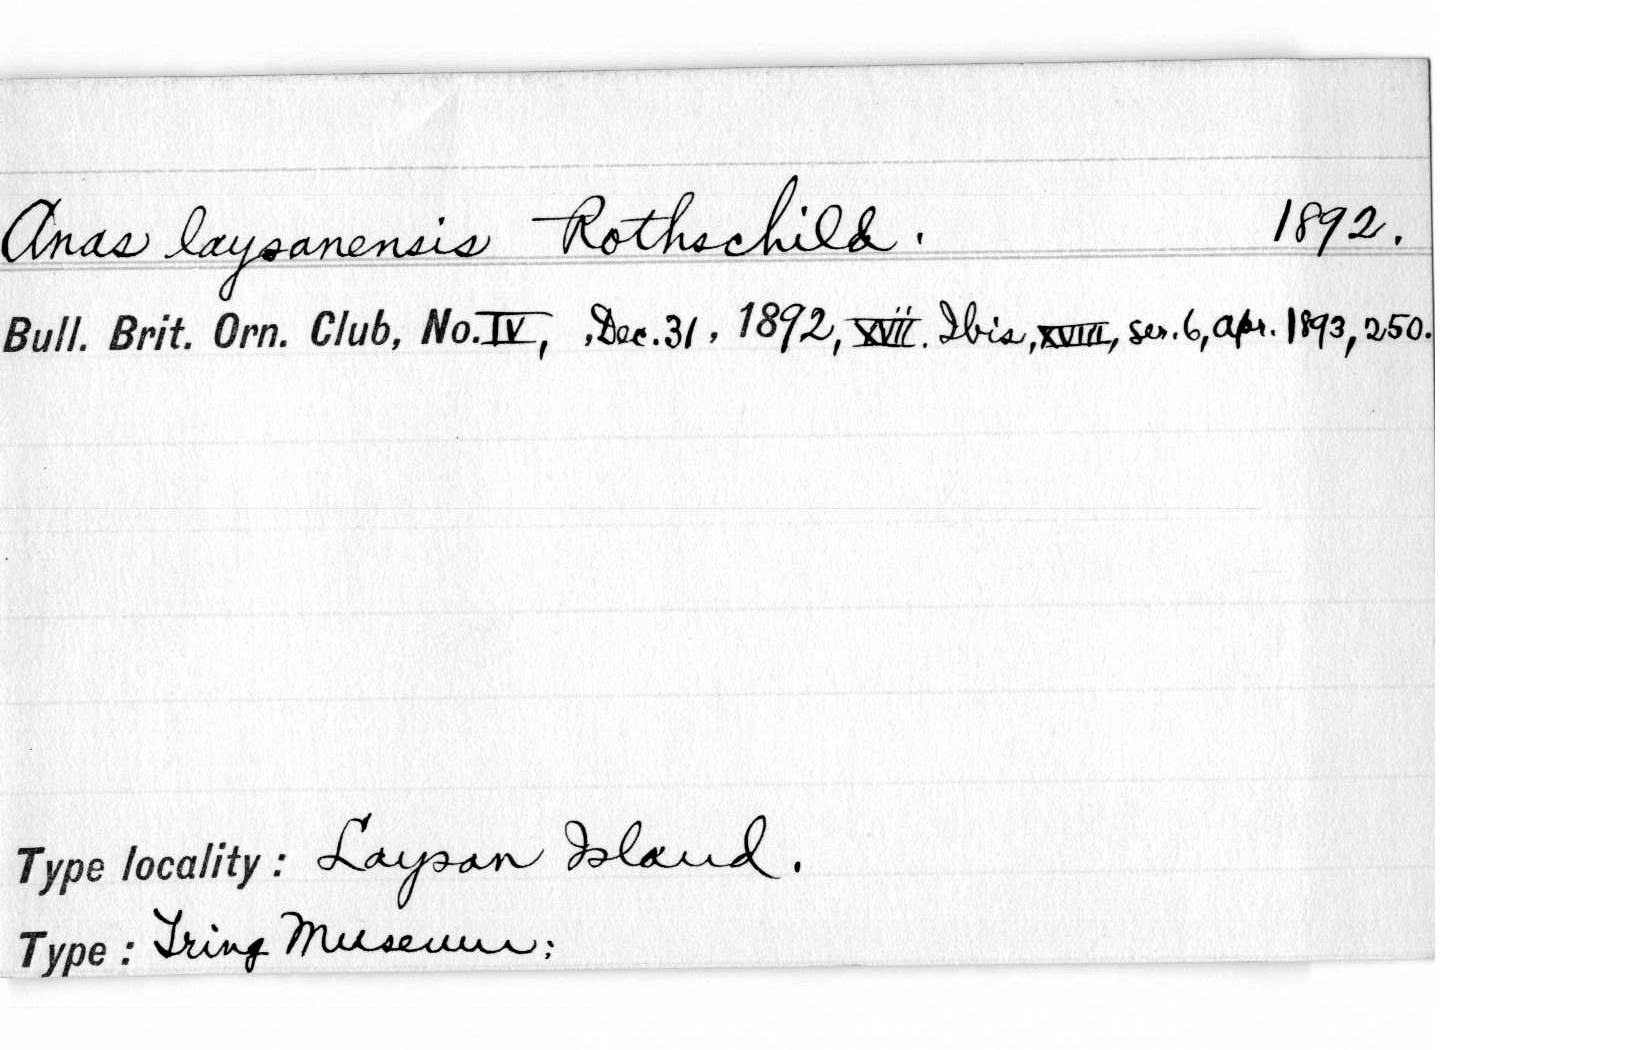 Anas laysanensis Rothschild. 1892.
Bull. Brit. Orn. Club, No. IV, , Dec. 31, 1892, xvii. Ibis, XVIII, ser. 6, Apr. 1893, 250.
Type locality: Laysan Island.
Type: Tring Museum;